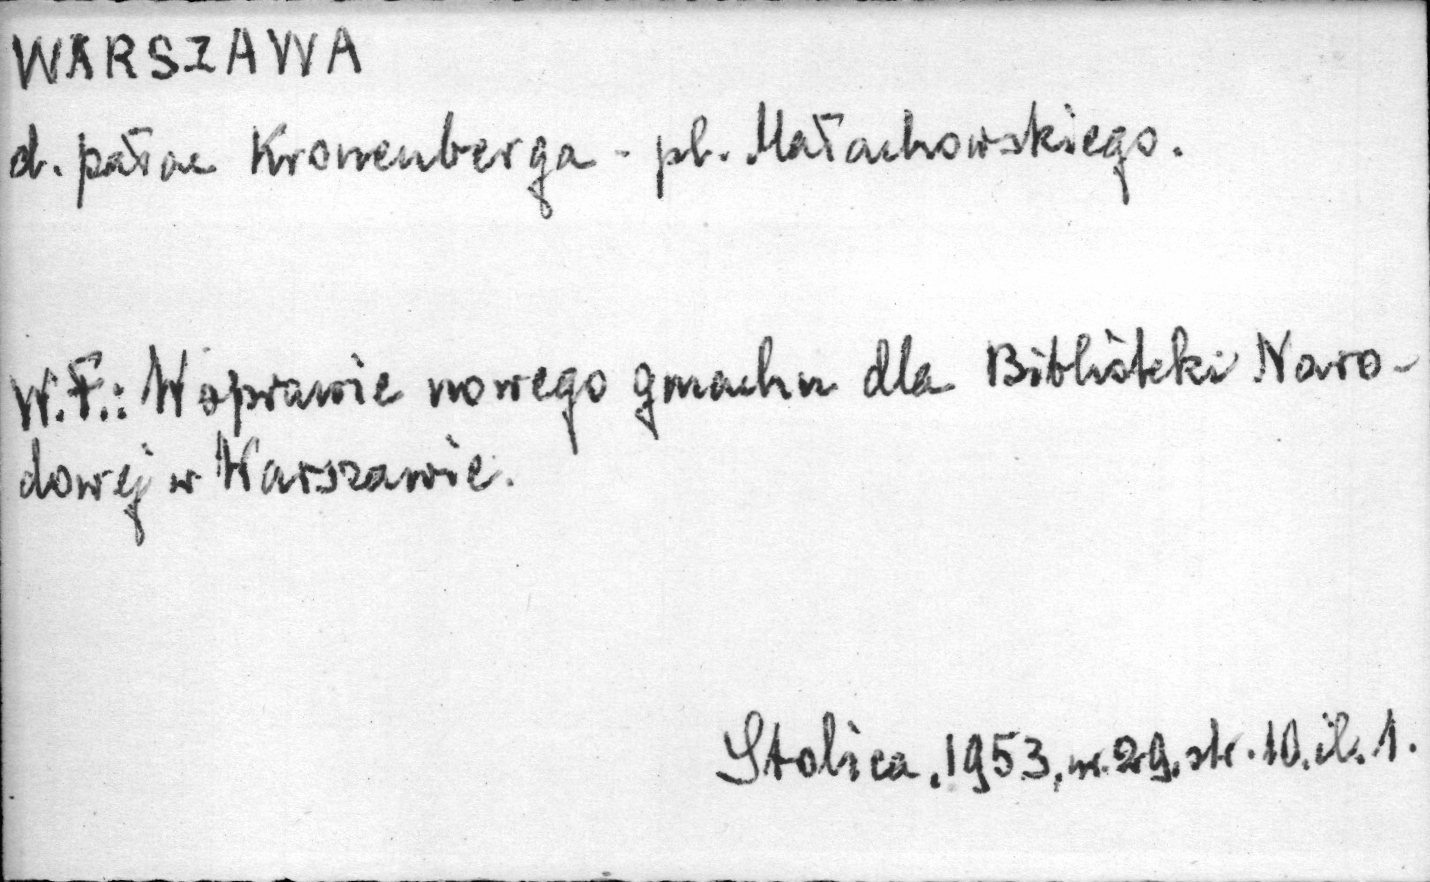 WARSZAWA
d. pałac Kronenberga - pl. Małachowskiego.
W.F.: W sprawie nowego gmachu dla Biblioteki Naro-
dowej w Warszawie.
Stolica, 1953, nr. 29, str. 10, il. 1.